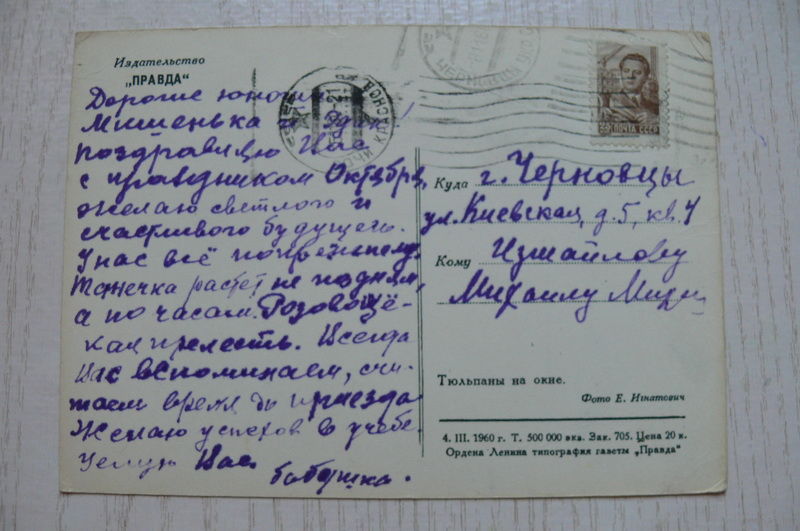 Издательство
„ПРАВДА“
Дорогие юноши
Мишенька и
поздравляю Вас
с праздником Октября,
желаю светлого и
счастливого будущего.
У нас всё по прежнему.
Танечка растет не по дням,
а по часам. Розовощё-
кая прелесть. Всегда
Вас вспоминаем, счи-
таем время до приезда
Желаю успехов в учебе.
Целую Вас.
бабушка.
ЧЕРНОВЦЫ
ПОЧТА СССР
Куда г. Черновцы
ул. Киевская, д. 5, кв. 4
Кому Измайлову
Михаилу
Тюльпаны на окне.
Фото Е. Игнатович
4. III. 1960 г. Т. 500 000 экз. Зак. 705. Цена 20 к.
Ордена Ленина типография газеты „Правда“